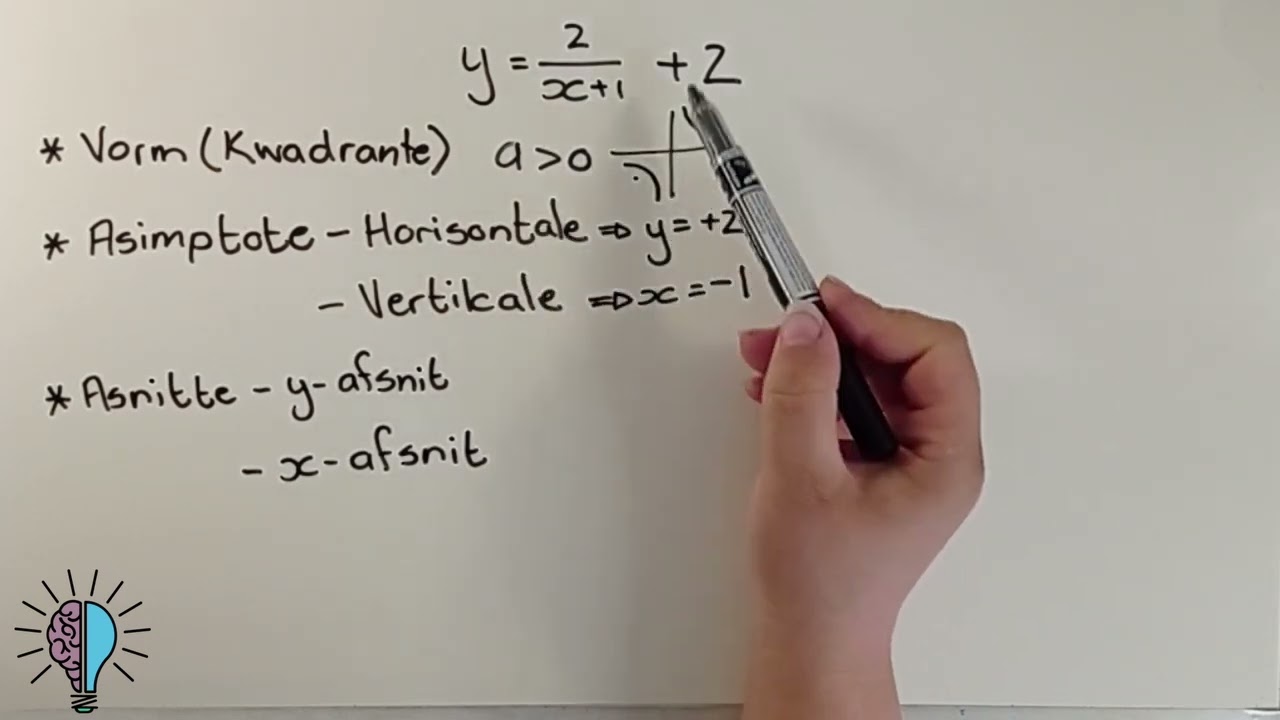 y = 2/(x+1) + 2
* Vorm (Kwadrante) a > 0
* Asimptote - Horisontale ⇒ y = +2
- Vertikale ⇒ x = -1
* Asnitte - y-afsnit
- x-afsnit